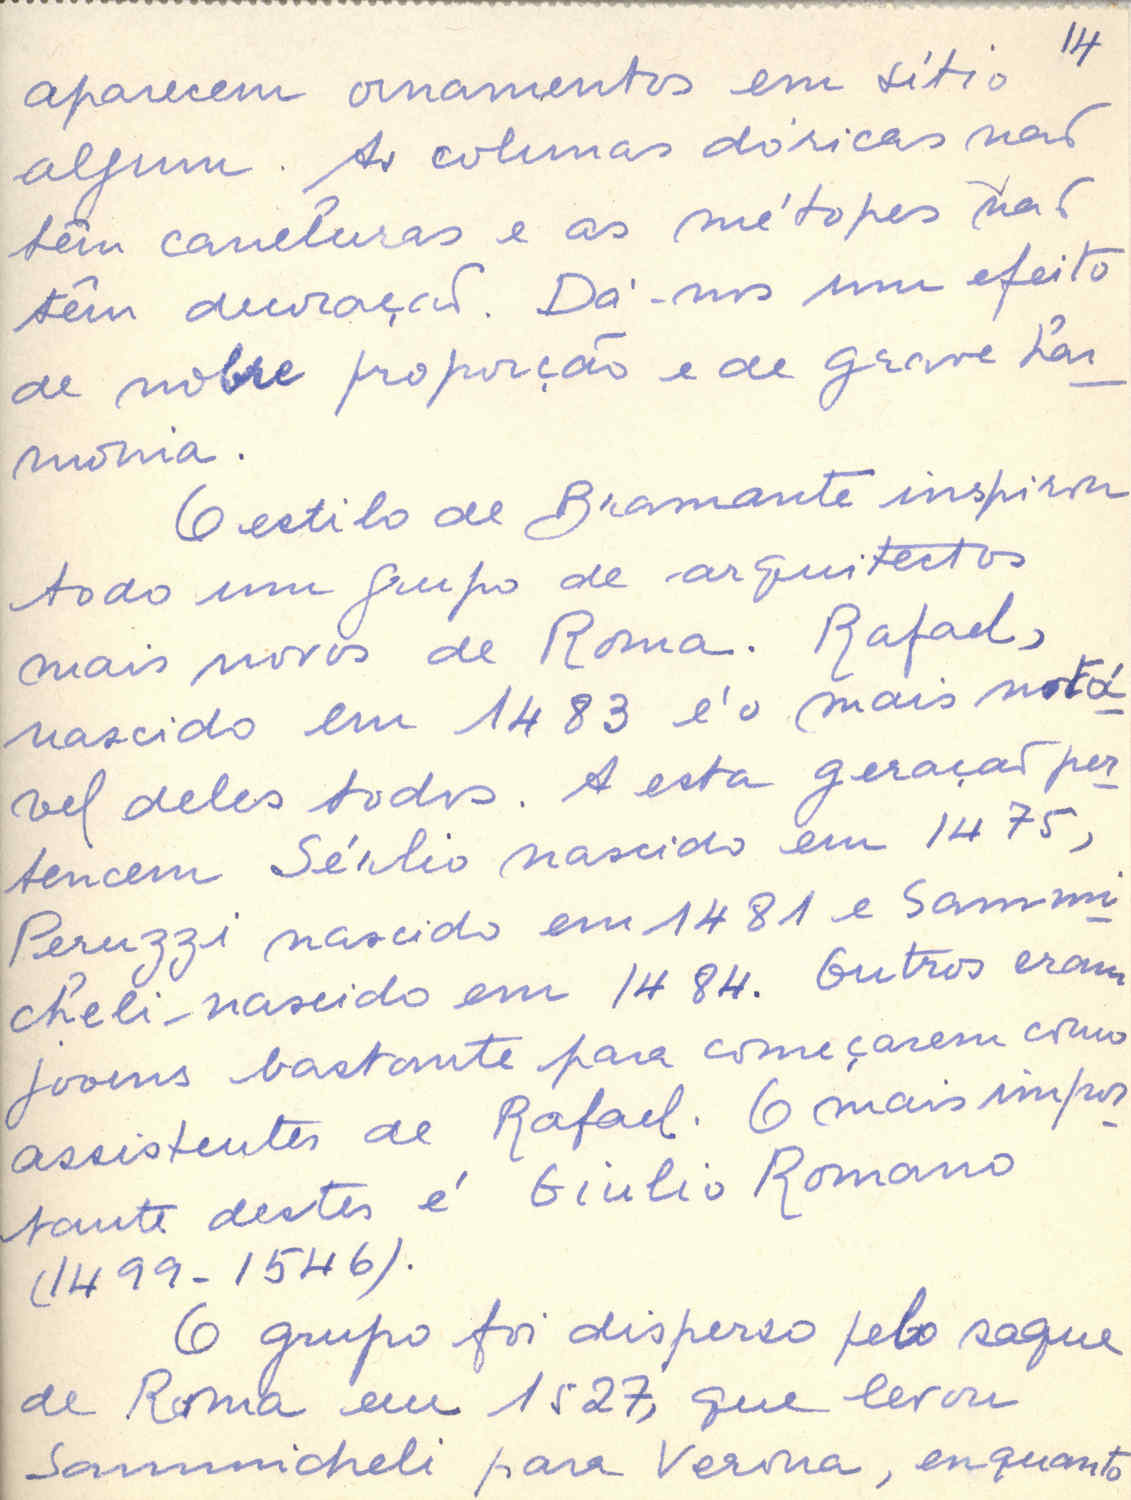 14
aparecem ornamentos em sítio
algum. As colunas dóricas não
têm caneluras e as métopes não
têm decoração. Dá-nos um efeito
de nobre proporção e de grave har
monia.
O estilo de Bramante inspirou
todo um grupo de arquitectos
mais novos de Roma. Rafael,
nascido em 1483 é o mais notá
vel deles todos. A esta geração per
tencem Sérlio nascido em 1475,
Peruzzi nascido em 1481 e Sammi
cheli-nascido em 1484. Outros eram
jovens bastante para começarem como
assistentes de Rafael. O mais impor
tante destes é Giulio Romano
(1499-1546).
O grupo foi disperso pelo saque
de Roma em 1527, que levou
Sammicheli para Verona, enquanto